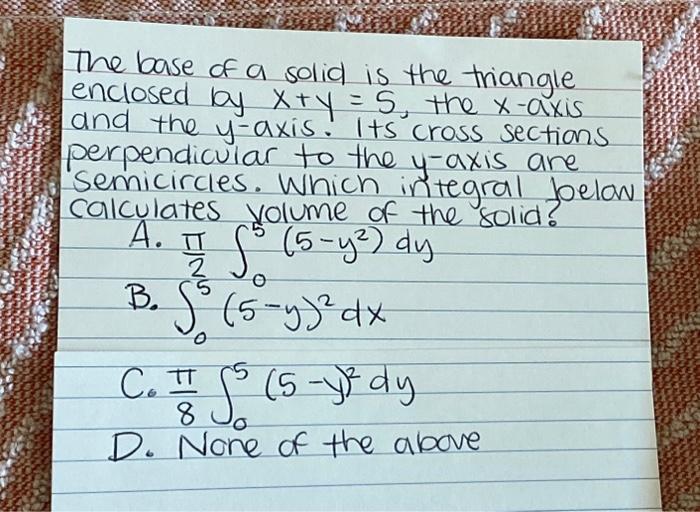 The base of a solid is the triangle
enclosed by x+y = 5, the x-axis
and the y-axis. Its cross sections
perpendicular to the y-axis are
semicircles. Which integral below
calculates volume of the solid?
A. π/2 ∫₀⁵ (5-y²) dy
B. ∫₀⁵ (5-y)² dx
C. π/8 ∫₀⁵ (5-y)² dy
D. None of the above